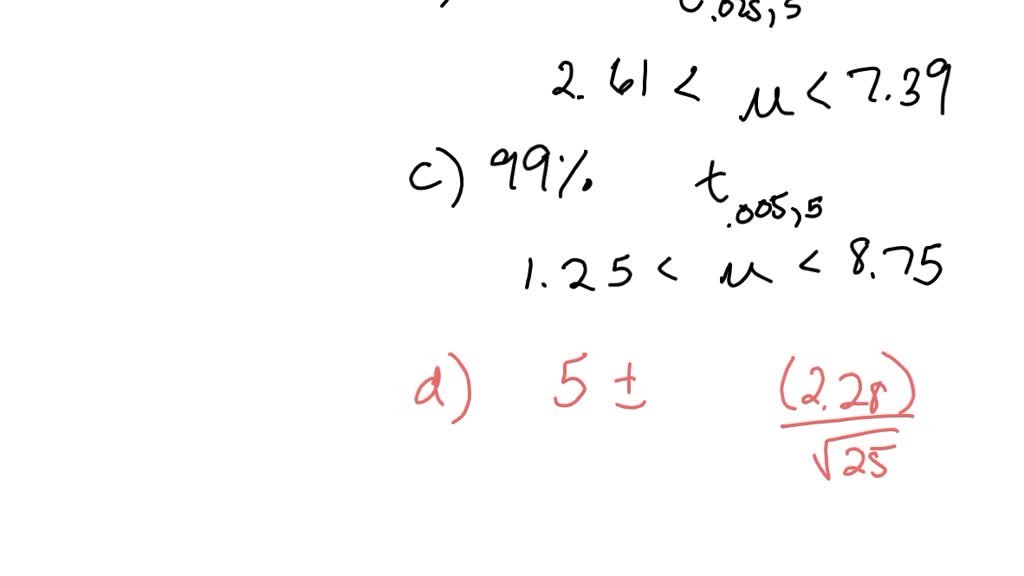 t.025,5
2.61 < μ < 7.39
c) 99% t.005,5
1.25 < μ < 8.75
d) 5 ± (2.28)/√25